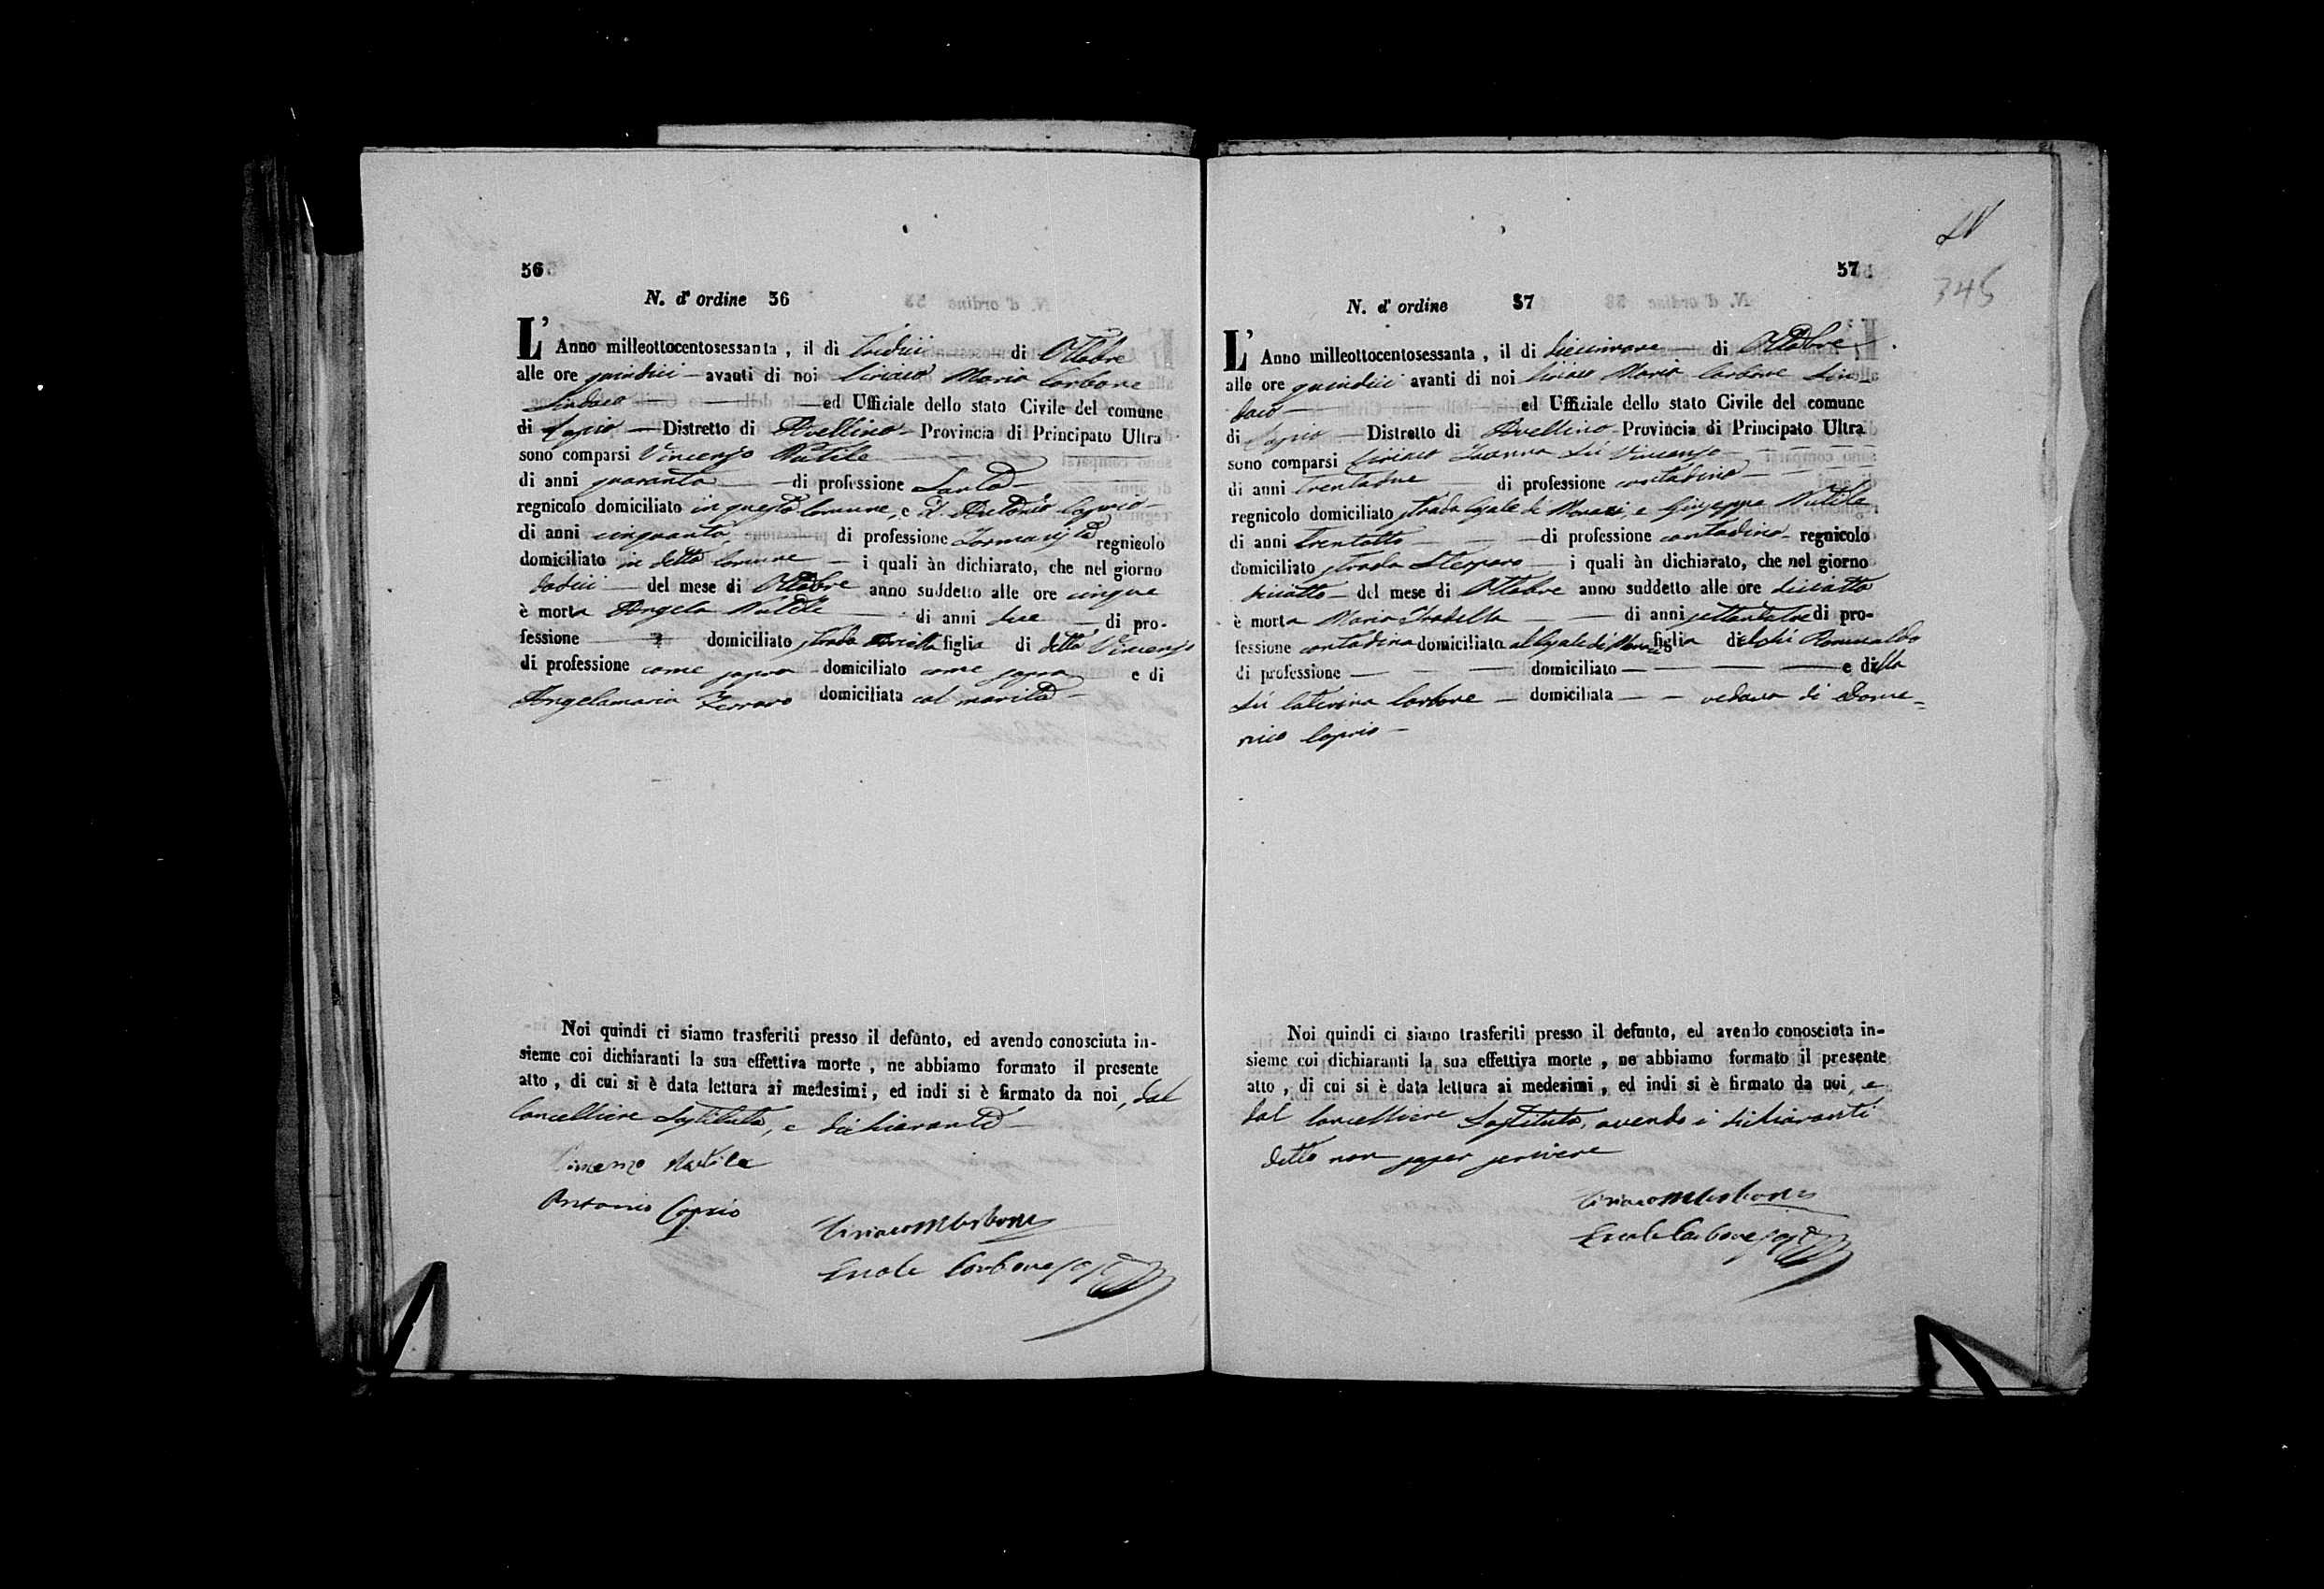 56
N. d' ordine 56
L' Anno milleottocentosessanta , il di tredici di Ottobre
alle ore quindici avanti di noi Ciriaco Maria Carbone
Sindaco ed Uffiziale dello stato Civile del comune
di Lapio Distretto di Avellino Provincia di Principato Ultra
sono comparsi Vincenzo Nutile
di anni quaranta di professione
regnicolo domiciliato in questo Comune, e D. Antonio Caprio
di anni cinquanta di professione Farmacista regnicolo
domiciliato in detto Comune i quali àn dichiarato, che nel giorno
dodici del mese di Ottobre anno suddetto alle ore cinque
è morta Angela Nutile di anni due di pro-
fessione domiciliato strada figlia di detto Vincenzo
di professione come sopra domiciliato come sopra e di
Angelamaria Ferraro domiciliata col marito
Noi quindi ci siamo trasferiti presso il defunto, ed avendo conosciuta in-
sieme coi dichiaranti la sua effettiva morte , ne abbiamo formato il presente
atto , di cui si è data lettura ai medesimi , ed indi si è firmato da noi , dal
Cancelliere Sostituto, e dichiaranti
Vincenzo Nutile
Antonio Caprio
Ciriaco M Carbone
Ercole Carbone sost
57
LV
345
N. d' ordine 57
L' Anno milleottocentosessanta , il di diecinnove di Ottobre
alle ore quindici avanti di noi Ciriaco Maria Carbone Sin-
daco ed Uffiziale dello stato Civile del comune
di Lapio Distretto di Avellino Provincia di Principato Ultra
sono comparsi Ciriaco Iaanna fu Vincenzo
di anni trentadue di professione contadino
regnicolo domiciliato strada di Monaci, e Giuseppe Nutile
di anni trentotto di professione contadino regnicolo
domiciliato strada i quali àn dichiarato, che nel giorno
diciotto del mese di Ottobre anno suddetto alle ore diciotto
è morta Maria Trodella di anni settantatre di pro-
fessione contadina domiciliato figlia del fu Romualdo
di professione domiciliato e della
fu Caterina Carbone domiciliata vedova di Dome=
nico Caprio
Noi quindi ci siamo trasferiti presso il defunto, ed avendo conosciuta in-
sieme coi dichiaranti la sua effettiva morte , ne abbiamo formato il presente
atto , di cui si è data lettura ai medesimi , ed indi si è firmato da noi, e
dal Cancelliere Sostituto, avendo i dichiaranti
detto non saper scrivere
Ciriaco M Carbone
Ercole Carbone sost